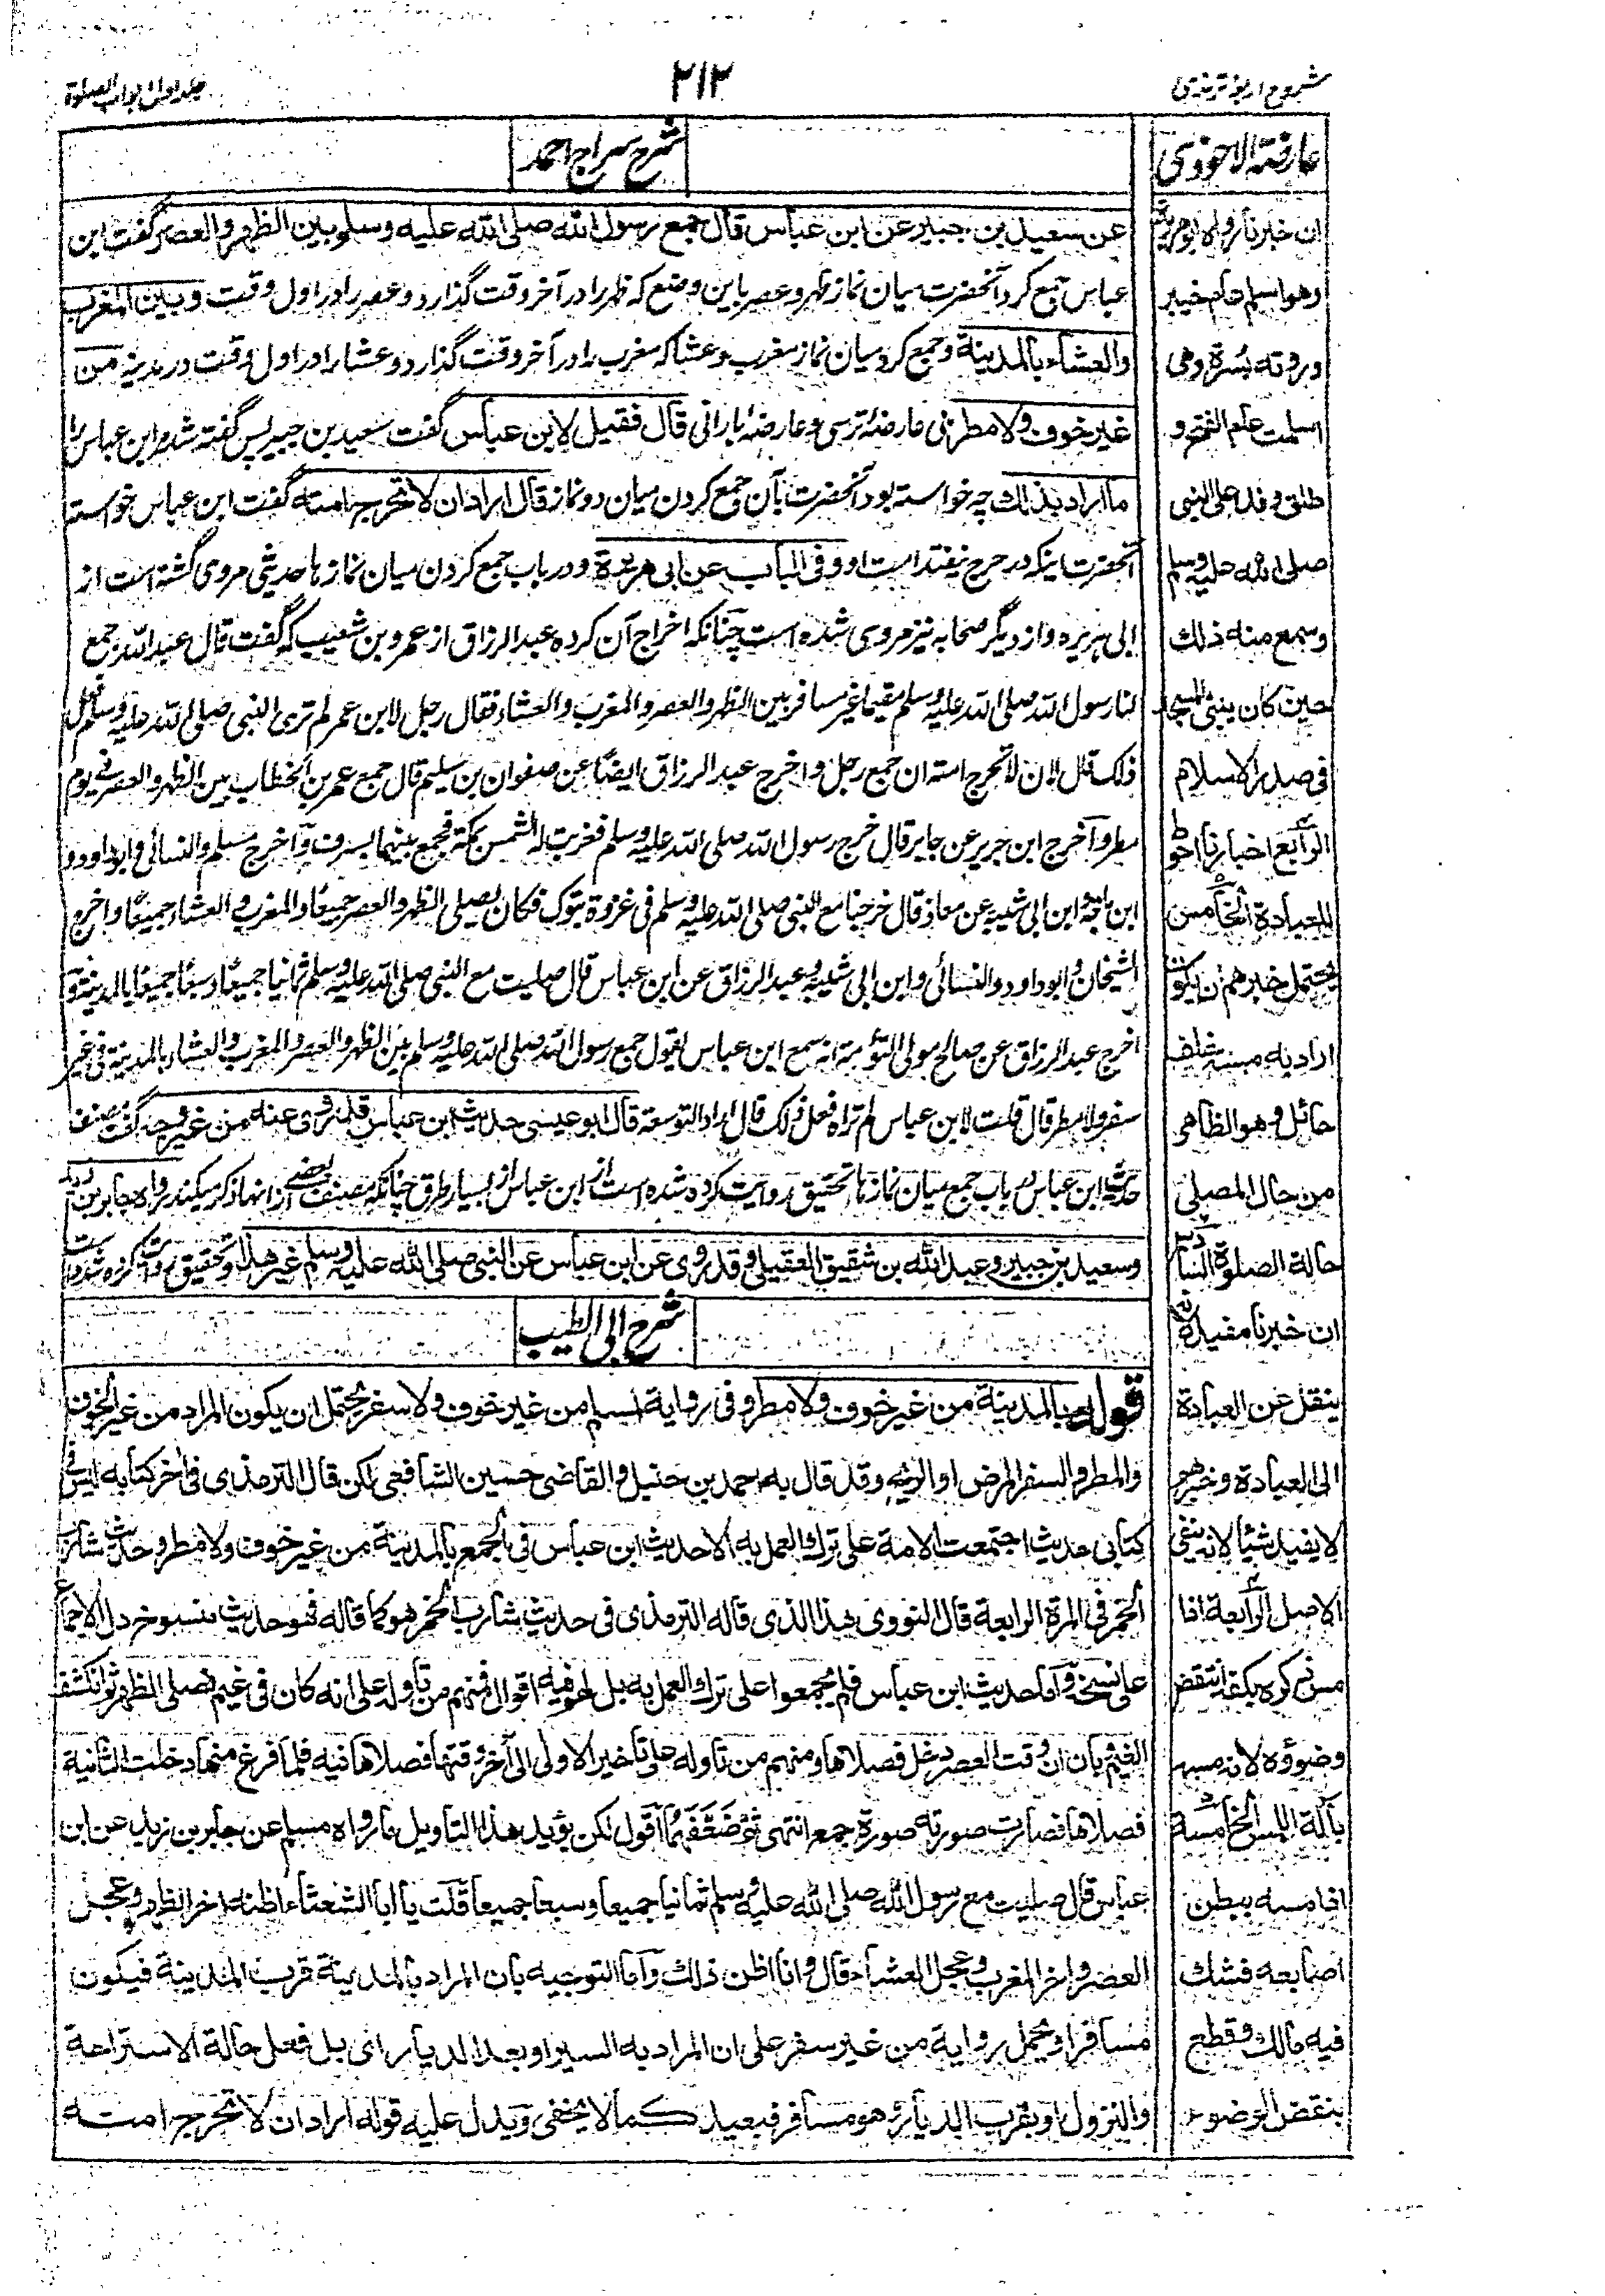 شروح اربعه ترمذی
۲۱۲
جلد اول ابواب الصلوة
عارضة الاحوذی
ان خبرنا رواه ابو هريرة
وهو اسلم عام خيبر
وروته بسرة وهی
اسلمت عام الفتح و
طلق وفد علی النبی
صلی الله علیه وسلم
وسمع منه ذلك
حین کان یبنی المسجد
فی صدر الاسلام
الرابع اخبارنا احوط
للعبادة الخامس
یحتمل خبرهم ان یکون
اراد به مسه خلف
حائل وهو الظاهر
من حال المصلی
حالة الصلوة السادس
ان خبرنا مفید لانه
ینقل عن العبادة
الی العبادة وخبرهم
لا یفید شیئا لانه ینفی
الاصل الرابعة اذا
مس ذکره بکفه انتقض
وضوؤه لانه مسه
بآلة اللمس الخامسة
اذا مسه ببطن
اصابعه فشك
فیه مالك وقطع
بنقض الوضوء
شرح سراج احمد
عن سعید بن جبیر عن ابن عباس قال جمع رسول الله صلی الله علیه وسلم بین الظهر والعصر گفت ابن
عباس جمع کرد آنحضرت میان نماز ظهر وعصر باین وضع که ظهر را در آخر وقت گذارد وعصر را در اول وقت وبین المغرب
والعشاء بالمدینة وجمع کرد میان نماز مغرب وعشا که مغرب را در آخر وقت گذارد وعشا را در اول وقت در مدینه من
غیر خوف ولا مطر بی عارضهٔ ترسی وعارضهٔ بارانی قال فقیل لابن عباس گفت سعید بن جبیر پس گفته شد مر ابن عباس را
ما اراد بذلك چه خواسته بود آنحضرت بآن جمع کردن میان دو نماز قال اراد ان لا تحرج امته گفت ابن عباس خواسته
آنحضرت اینکه در حرج نیفتد امت او وفی الباب عن ابی هریرة ودر باب جمع کردن میان نمازها حدیثی مروی گشته است از
ابی هریره واز دیگر صحابه نیز مروی شده است چنانکه اخراج آن کرده عبد الرزاق از عمرو بن شعیب که گفت قال عبد الله جمع
لنا رسول الله صلی الله علیه وسلم مقیما غیر مسافر بین الظهر والعصر والمغرب والعشاء فقال رجل لابن عمر لم تری النبی صلی الله علیه وسلم فعل
ذلك قال لان لا تحرج امته ان جمع رجل واخرج عبد الرزاق ایضا عن صفوان بن سلیم قال جمع عمر بن الخطاب بین الظهر والعصر فی یوم
مطر وآخرج ابن جریر عن جابر قال خرج رسول الله صلی الله علیه وسلم فغربت له الشمس بمکة فجمع بینهما بسرف وآخرج مسلم والنسائی وابو داود و
ابن ماجة وابن ابی شیبه عن معاذ قال خرجنا مع النبی صلی الله علیه وسلم فی غزوة تبوک فکان یصلی الظهر والعصر جمیعا والمغرب والعشاء جمیعا واخرج
الشیخان وابو داود والنسائی وابن ابی شیبه وعبد الرزاق عن ابن عباس قال صلیت مع النبی صلی الله علیه وسلم ثمانیا جمیعا وسبعا جمیعا بالمدینة و
اخرج عبد الرزاق عن صالح مولی التوأمة انه سمع ابن عباس یقول جمع رسول الله صلی الله علیه وسلم بین الظهر والعصر والمغرب والعشاء بالمدینة فی غیر
سفر ولا مطر قال قلت لابن عباس لم تراه فعل ذلك قال اراد التوسعة قال ابو عیسی حدیث ابن عباس قد روی عنه من غیر وجه گفت مصنف
حدیث ابن عباس در باب جمع میان نمازها تحقیق روایت کرده شده است از ابن عباس از بسیار طرق چنانکه مصنف بعضی از انها ذکر میکند رواه جابر بن زید
وسعید بن جبیر وعبد الله بن شقیق العقیلی وقد روی عن ابن عباس عن النبی صلی الله علیه وسلم غیر هذا وتحقیق روایت کرده شده است
شرح ابی الطیب
قوله بالمدینة من غیر خوف ولا مطر وفی روایة لمسلم من غیر خوف ولا سفر یحتمل ان یکون المراد من غیر الخوف
والمطر والسفر المرض او الوحل وقد قال به احمد بن حنبل والقاضی حسین الشافعی لکن قال الترمذی فی آخر کتابه لیس فی
کتابی حدیث اجتمعت الامة علی ترك العمل به الا حدیث ابن عباس فی الجمع بالمدینة من غیر خوف ولا مطر وحدیث شارب
الخمر فی المرة الرابعة قال النووی هذا الذی قاله الترمذی فی حدیث شارب الخمر هو کما قاله فهو حدیث منسوخ دل الاجماع
علی نسخه وآما حدیث ابن عباس فلم یجمعوا علی ترك العمل به بل لهم فیه اقوال فمنهم من تأوله علی انه کان فی غیم فصلی الظهر ثم انکشف
الغیم وبان ان وقت العصر دخل فصلاها ومنهم من تأوله علی تاخیر الاولی الی آخر وقتها فصلاها فیه فلما فرغ منها دخلت الثانیة
فصلاها فصارت صورته صورة جمع انتهی ثم ضعفهما اقول لکن یؤید هذا التأویل ما رواه مسلم عن جابر بن زید عن ابن
عباس قال صلیت مع رسول الله صلی الله علیه وسلم ثمانیا جمیعا وسبعا جمیعا قلت یا ابا الشعثاء اظنه اخر الظهر وعجل
العصر واخر المغرب وعجل العشاء قال وانا اظن ذلك وآما التوجیه بان المراد بالمدینة قرب المدینة فیکون
مسافرا ویحمل روایة من غیر سفر علی ان المراد به السیر او بعد الدیار ای بل فعل حالة الاستراحة
والنزول او بقرب الدیار وهو مسافر فبعید کما لا یخفی ویدل علیه قوله اراد ان لا تحرج امته